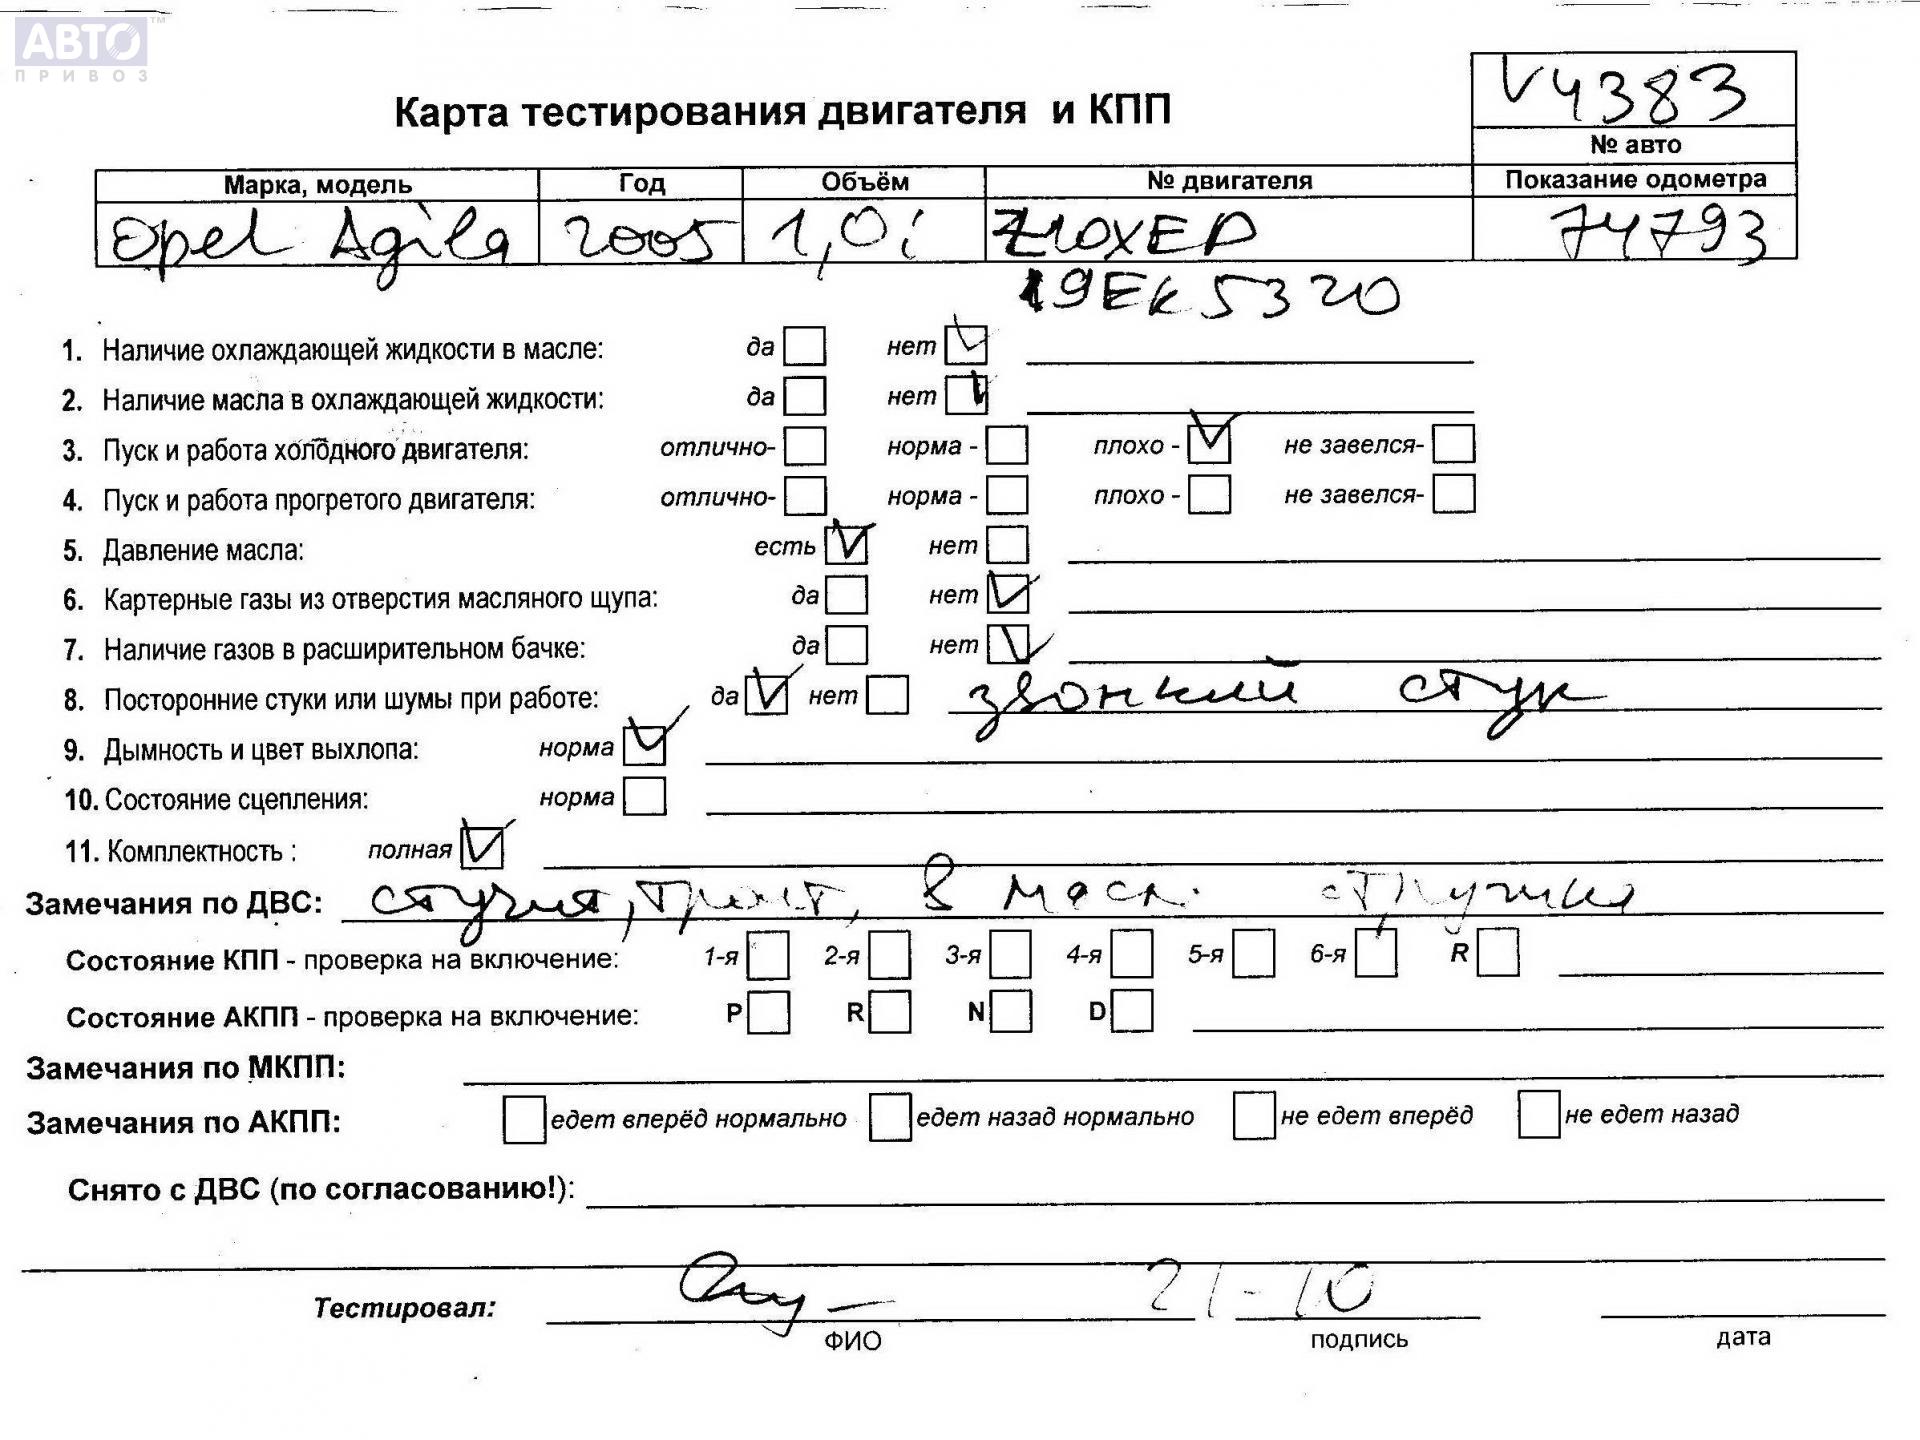 АВТО™
ПРИВОЗ
V4383
Карта тестирования двигателя и КПП
№ авто
Марка, модель Год Объём № двигателя Показание одометра
Opel Agila 2005 1,0i Z10XEP 74793
19EK5320
1. Наличие охлаждающей жидкости в масле: да нет
2. Наличие масла в охлаждающей жидкости: да нет
3. Пуск и работа холодного двигателя: отлично- норма - плохо - не завелся-
4. Пуск и работа прогретого двигателя: отлично- норма - плохо - не завелся-
5. Давление масла: есть нет
6. Картерные газы из отверстия масляного щупа: да нет
7. Наличие газов в расширительном бачке: да нет
8. Посторонние стуки или шумы при работе: да нет звонкий стук
9. Дымность и цвет выхлопа: норма
10. Состояние сцепления: норма
11. Комплектность : полная
Замечания по ДВС: стучит, троит, в масл. стружка
Состояние КПП - проверка на включение: 1-я 2-я 3-я 4-я 5-я 6-я R
Состояние АКПП - проверка на включение: P R N D
Замечания по МКПП:
Замечания по АКПП: едет вперёд нормально едет назад нормально не едет вперёд не едет назад
Снято с ДВС (по согласованию!):
Тестировал: 21-10
ФИО подпись дата